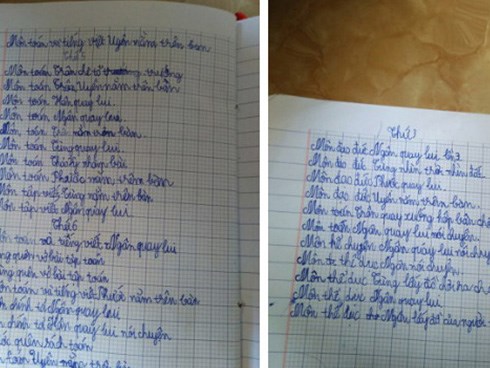 Môn toán và tiếng việt Uyên nằm trên bàn
Thứ 5
Môn toán Trân
Môn toán Uyên nằm trên bàn
Môn toán Hân quay lui
Môn toán Ngân quay lui
Môn toán nằm trên bàn
Môn toán Tùng quay lui
Môn toán bài
Môn toán Phước nằm trên bàn
Môn tập viết Tùng nằm trên bàn
Môn tập viết Ngân quay lui
Thứ 6
toán và tiếng việt Ngân quay lui
quên vở bài tập toán
quên vở bài tập toán
toán và tiếng việt Phước nằm trên bàn
chính tả Ngân quay lui
chính tả Hân quay lui nói chuyện
quên sách toán
toán Uyên nằm
Thứ
Môn đạo đức Ngân quay lui
Môn đạo đức Tùng nhìn trời nhìn đất
Môn đạo đức Phước quay lui
Môn đạo đức Uyên nằm trên bàn
Môn toán Trân quay xuống
Môn toán Ngân quay lui nói chuyện
Môn kể chuyện Ngân quay lui nói
Môn thể dục Ngân nói chuyện
Môn thể dục Tùng lấy đồ
Môn thể dục Ngân quay lui
Môn thể dục Ngân lấy đồ của người